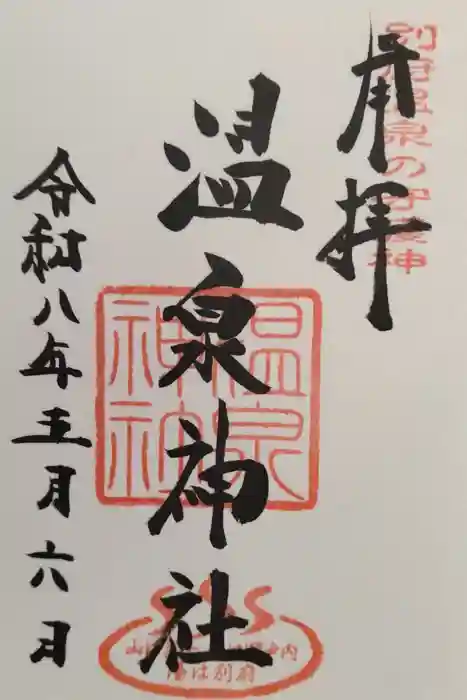 別府温泉の守護神
奉拝
温泉神社
温泉神社
令和八年五月六日
湯は別府